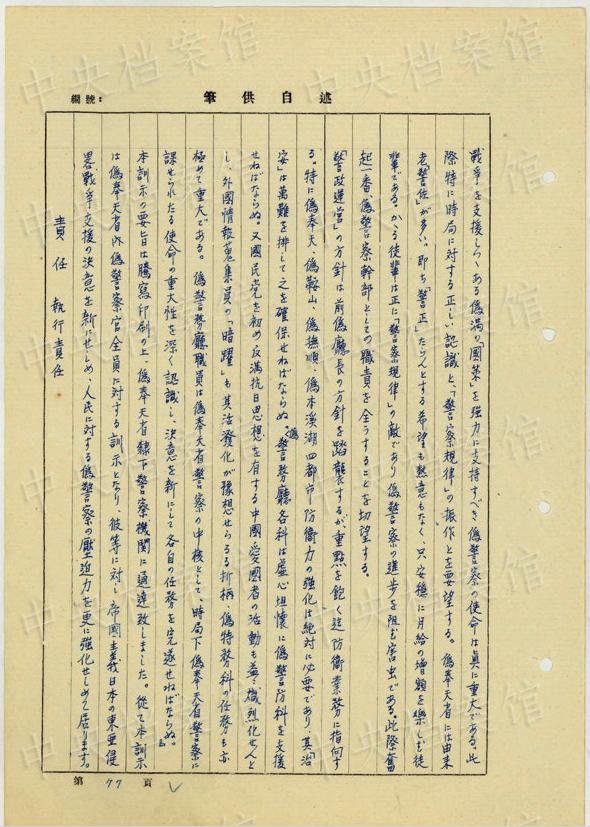 編號：
筆供自述
戰爭を支援しつゝある偽満の「國策」を強力に支持すべき偽警察の使命は真に重大である。此
際特に時局に対する正しい認識と、「警察規律」の振作とを要望する。偽奉天省には由来
老「警佐」が多い。即ち「警正」たらんとする希望も熱意もなく、只安穏に月給の増額を樂しむ徒
輩である。かゝる徒輩は正に「警察規律」の敵であり偽警察の進歩を阻む害虫である。此際奮
起一番偽警察幹部としての職責を全うすることを切望する。
「警政運営」の方針は前偽廳長の方針を踏襲するが重點を飽く迄防衛業務に指向す
る。特に偽奉天、偽鞍山、偽撫順、偽本溪湖四都市防衛力の強化は絶対に必要であり其「治
安」は萬難を排して之を確保せねばならぬ。偽警務廳各科は虚心坦懐に偽警防科を支援
せねばならぬ。又國民党を初め反満抗日思想を有する中國愛國者の活動も益々熾烈化せんと
し、外國情報蒐集員の「暗躍」も其活發化が豫想せらるる折柄、偽特務科の任務も亦
極めて重大である。偽警務廳職員は偽奉天省警察の中核として、時局下偽奉天省警察に
課せられたる使命の重大性を深く認識し、決意を新にして各自の任務を完遂せねばならぬ。』
本訓示の要旨は騰寫印刷の上、偽奉天省隷下警察機関に通達致しました。従て本訓示
は偽奉天省内偽警察官全員に対する訓示となり、彼等に対し帝國主義日本の東亜侵
畧戰爭支援の決意を新にせしめ、人民に対する偽警察の壓迫力を更に強化せしめて居ります。
責任　執行責任
第77頁
中央档案馆